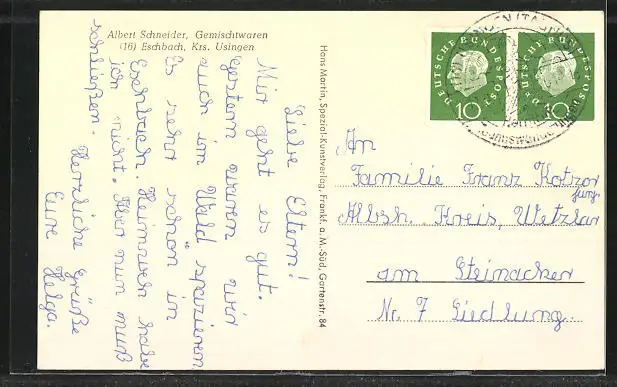 Albert Schneider, Gemischtwaren
(16) Eschbach, Krs. Usingen
Liebe Eltern!
Mir geht es gut.
Gestern waren wir
auch im Wald spazieren
Es sehr schön in
Eschbach. Heimweh habe
ich nicht. Aber nun muß
schließen. Herzliche Grüße
Eure Helga.
Hans Martin, Spezial-Kunstverlag, Frankf. a. M.-Süd, Gartenstr. 84
DEUTSCHE BUNDESPOST
10
DEUTSCHE BUNDESPOST
10
An
Familie Franz Kotzor
jung.
Albsh. Kreis, Wetzlar
am Steinacker
Nr. 7 Siedlung.